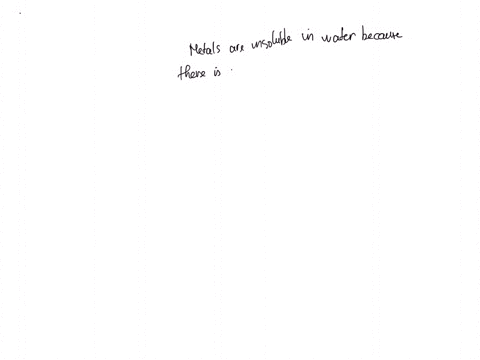 Metals are insoluble in water because
there is .